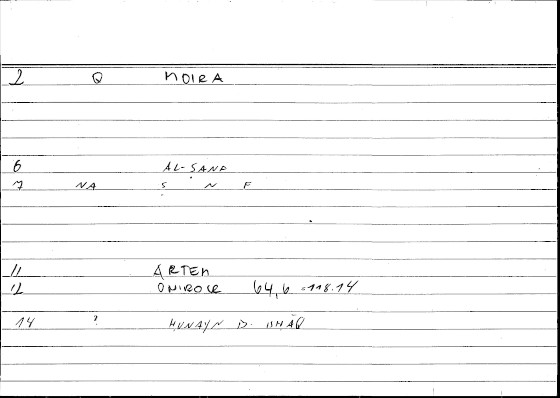 2 Q MOIRA
6 AL-SANF
7 NA S N F
11 ARTEM
12 ONIROCR 64,6 = 118.14
14 ? ḤUNAYN B. ISḤĀQ